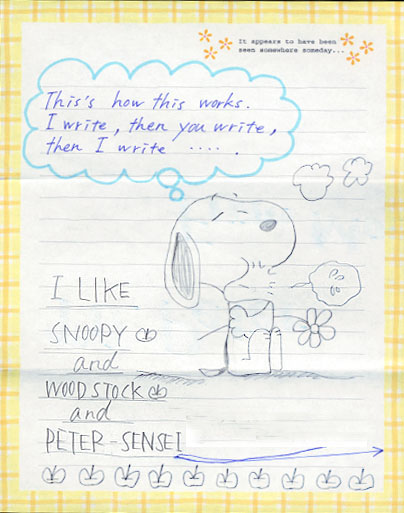 It appears to have been
seen somewhere someday...
This's how this works.
I write, then you write,
then I write .....
I LIKE
SNOOPY
and
WOODSTOCK
and
PETER-SENSEI